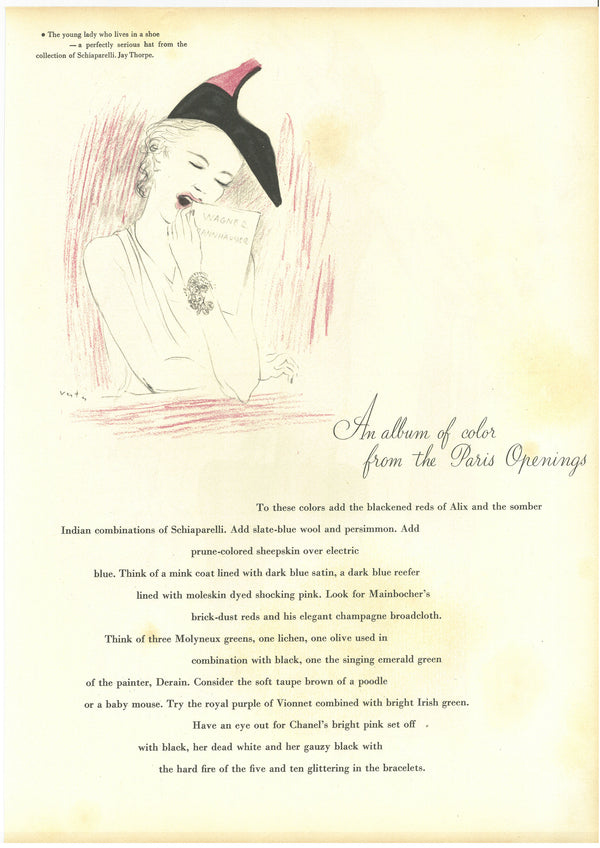 • The young lady who lives in a shoe
— a perfectly serious hat from the
collection of Schiaparelli. Jay Thorpe.
WAGNER
TANNHAUSER
An album of color
from the Paris Openings
To these colors add the blackened reds of Alix and the somber
Indian combinations of Schiaparelli. Add slate-blue wool and persimmon. Add
prune-colored sheepskin over electric
blue. Think of a mink coat lined with dark blue satin, a dark blue reefer
lined with moleskin dyed shocking pink. Look for Mainbocher's
brick-dust reds and his elegant champagne broadcloth.
Think of three Molyneux greens, one lichen, one olive used in
combination with black, one the singing emerald green
of the painter, Derain. Consider the soft taupe brown of a poodle
or a baby mouse. Try the royal purple of Vionnet combined with bright Irish green.
Have an eye out for Chanel's bright pink set off
with black, her dead white and her gauzy black with
the hard fire of the five and ten glittering in the bracelets.